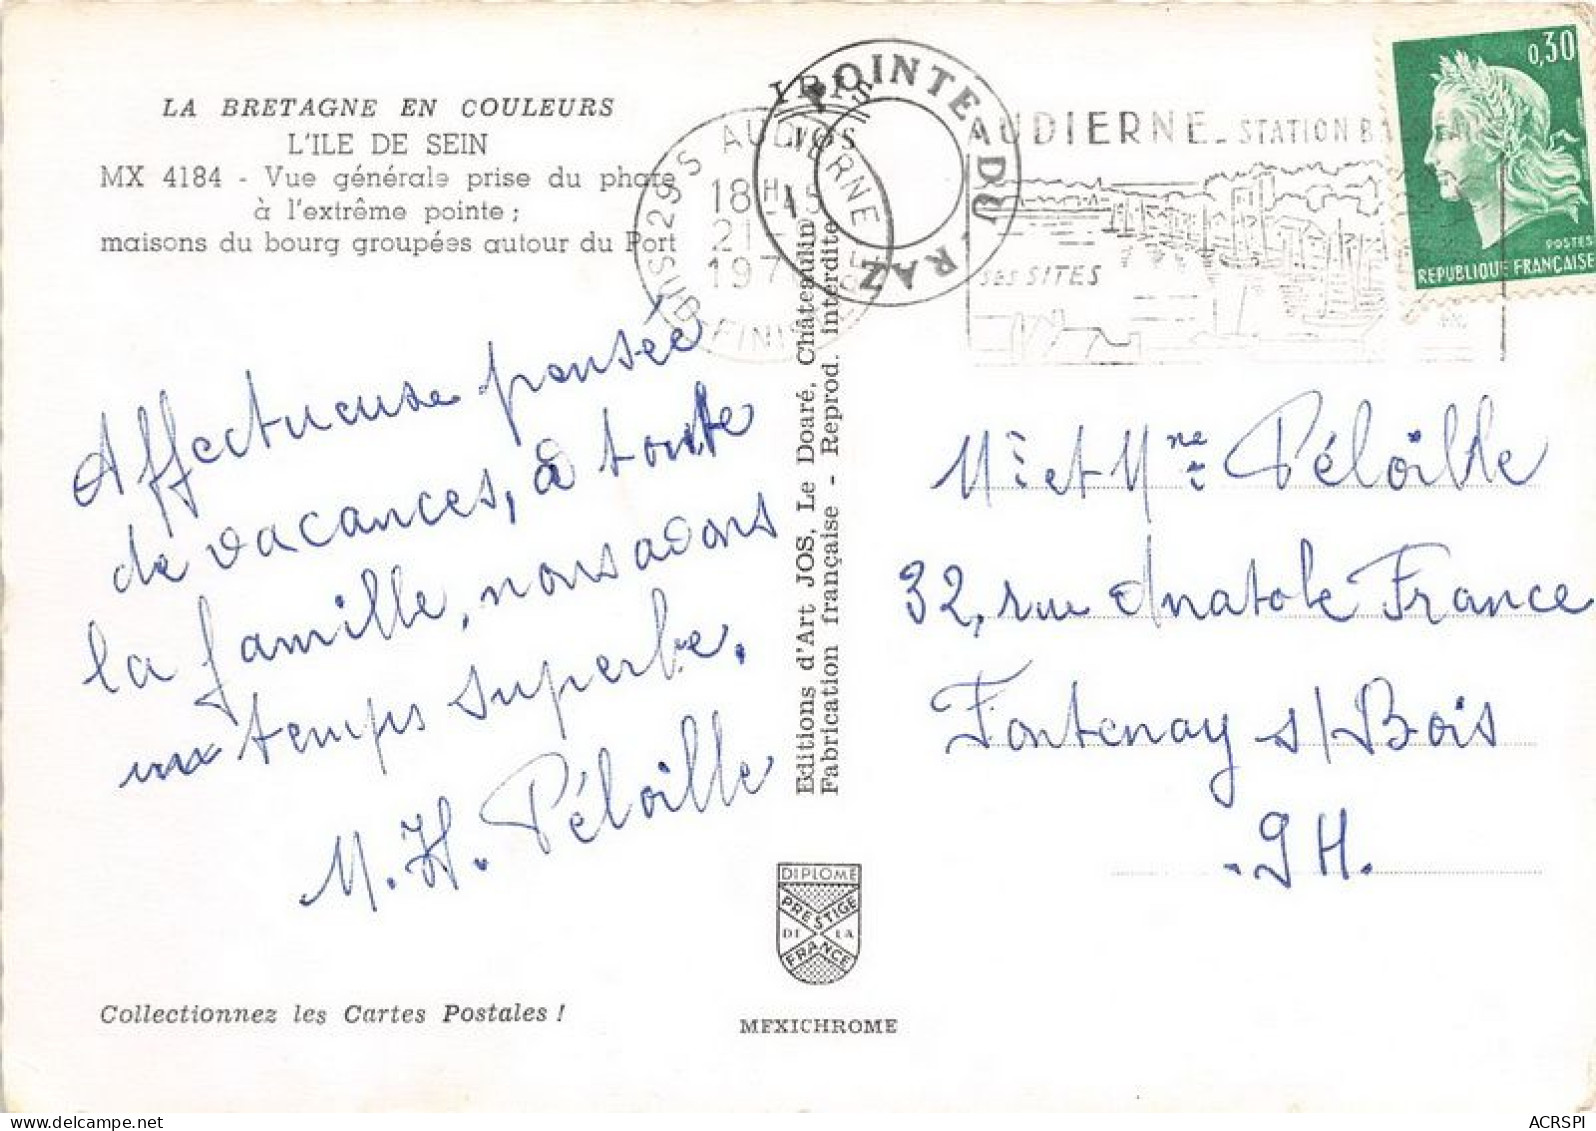 LA BRETAGNE EN COULEURS
L'ILE DE SEIN
MX 4184 - Vue générale prise du phare
à l'extrême pointe ;
maisons du bourg groupées autour du Port
Affectueuse pensée
de vacances, à toute
la famille, nous avons
un temps superbe.
M. H. Péloille
Collectionnez les Cartes Postales !
Editions d'Art JOS, Le Doaré, Châteaulin
Fabrication française - Reprod. interdite
DIPLOME
PRESTIGE
DE LA
FRANCE
MEXICHROME
POINTE DU RAZ
AUDIERNE
18H15
21
197
FINIS
AUDIERNE - STATION
SES SITES
0,30
POSTES
REPUBLIQUE FRANÇAISE
Mr et Mme Péloille
32, rue Anatole France
Fontenay s/Bois
94.
ACRSPI